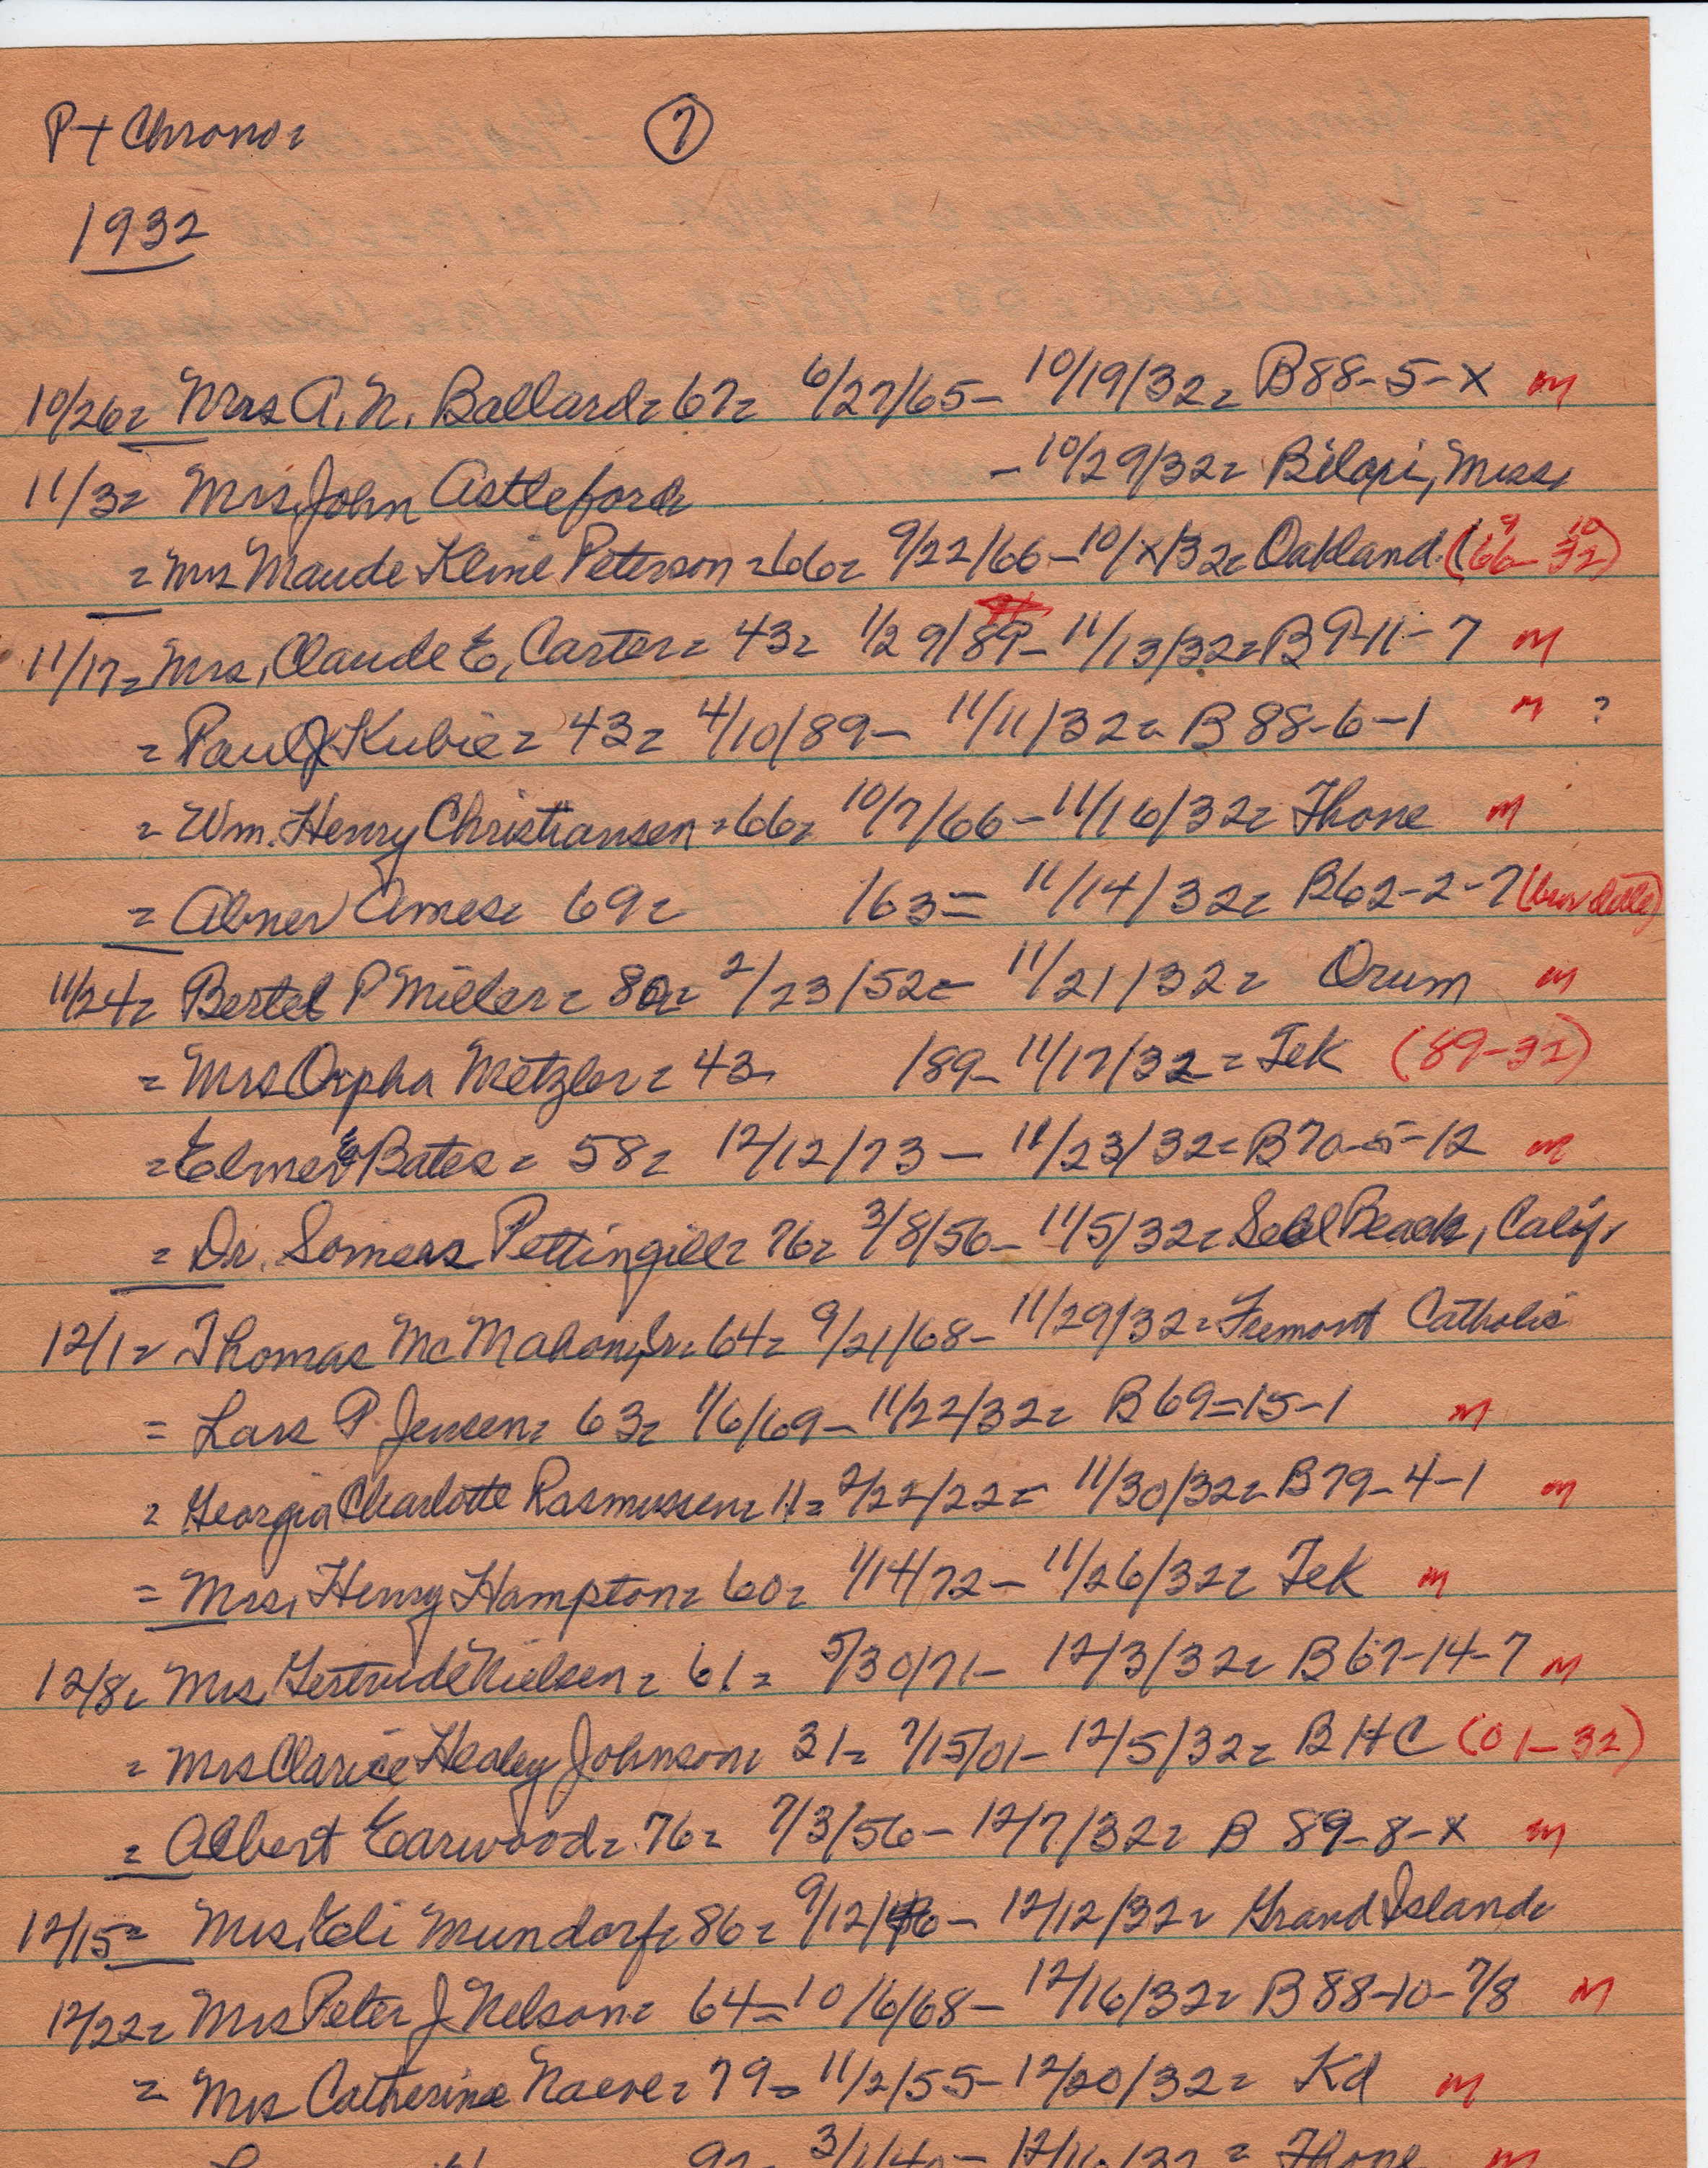 P+ Chrono= 7
1932
10/26= Mrs A. N. Ballard= 67= 6/27/65- 10/19/32= B88-5-X m
11/3= Mrs, John Astleford= - 10/29/32= Biloxi, Miss,
= Mrs Maude Kline Peterson =66= 9/22/66-10/x/32= Oakland (9/66-10/32)
11/17= Mrs, Claude E, Carter= 43= 1/29/89- 11/13/32= B 9-11-7 m
= Paul J Kubie= 43= 4/10/89- 11/11/32= B 88-6-1 m ?
= Wm. Henry Christiansen =66= 10/7/66-11/16/32= Thone m
= Abner Ames= 69= /63= 11/14/32= B62-2-7
11/24= Bertel P Miller= 80= 2/23/52= 11/21/32= Orum m
= Mrs Orpha Metzler= 43, /89- 11/17/32= Tek (89-32)
= Elmer E Bates= 58= 12/12/73- 11/23/32= B70-5-12 m
= Dr. Somers Pettingill= 76= 3/8/56- 11/5/32= Seal Beach, Calif,
12/1= Thomas McMahon, Sr= 64= 9/21/68- 11/29/32= Fremont Catholic
= Lars P Jensen= 63= 1/6/69- 11/22/32= B 69=15-1 m
= Georgia Charlotte Rasmussen= 11= 2/22/22= 11/30/32= B79-4-1 m
= Mrs, Henry Hampton= 60= 1/14/72- 11/26/32= Tek m
12/8= Mrs, Gertrude Nielsen= 61= 5/30/71- 12/3/32= B 67-14-7 m
= Mrs Clarice Healey Johnson= 31= 7/15/01- 12/5/32= B HC (01-32)
= Albert Earwood= 76= 7/3/56- 12/7/32= B 89-8-X m
12/15= Mrs, Eli Mundorf= 86= 9/12/46- 12/12/32= Grand Island=
12/22= Mrs Peter J Nelson= 64= 10/6/68- 12/16/32= B 88-10-7/8 m
= Mrs Catherine Naeve= 79= 11/2/55- 12/20/32= Kd m